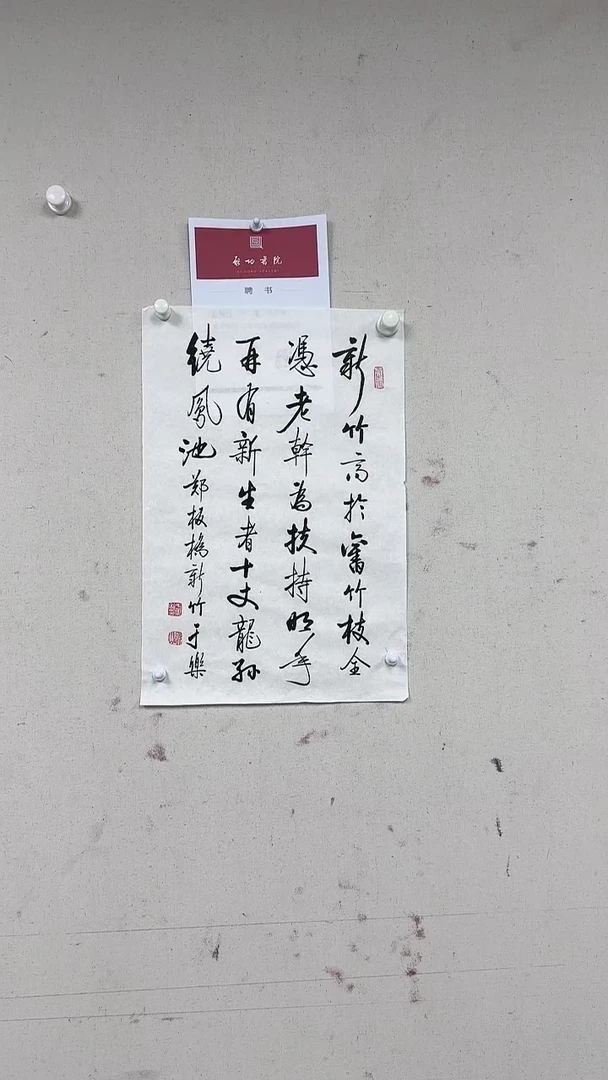 启功书院
聘书
新竹高於舊竹枝全
憑老幹為扶持明年
再有新生者十丈龍孫
繞鳳池郑板橋新竹于樂